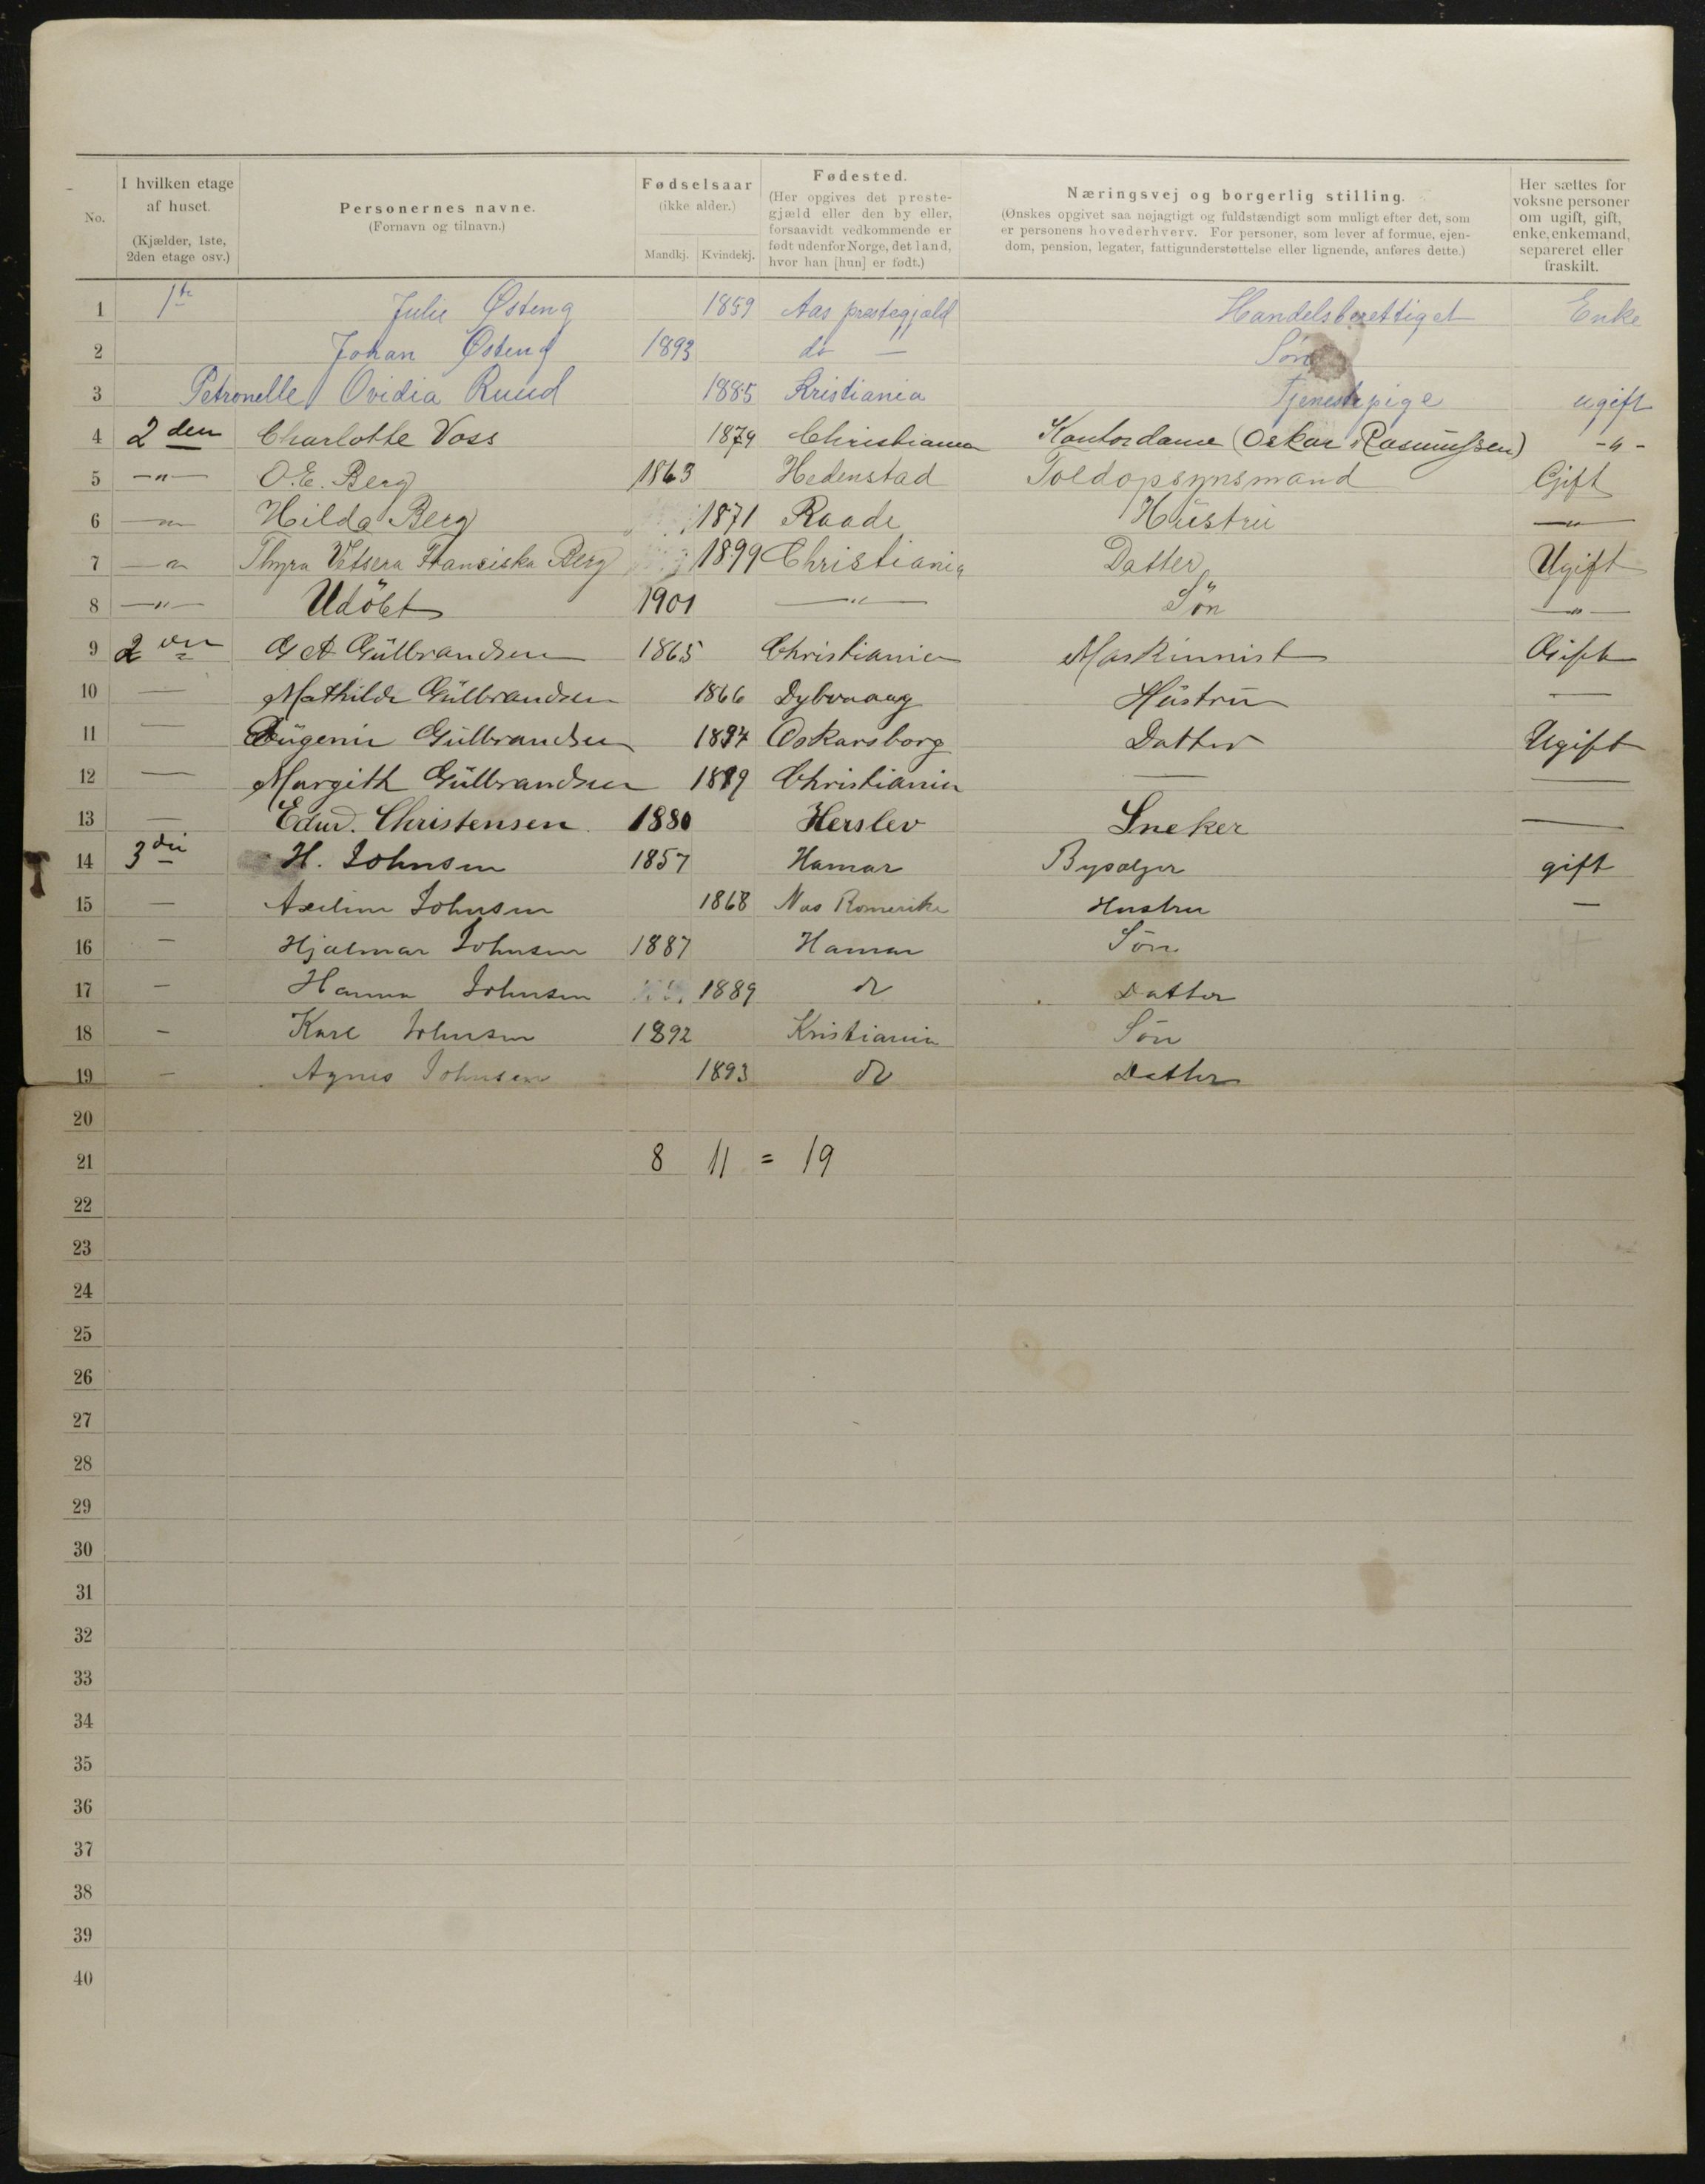 No. | I hvilken etage af huset. (Kjælder, 1ste, 2den etage osv.) | Personernes navne. (Fornavn og tilnavn.) | Fødselsaar (ikke alder.) Mandkj. Kvindekj. | Fødested. (Her opgives det prestegjæld eller den by eller, forsaavidt vedkommende er født udenfor Norge, det land, hvor han [hun] er født.) | Næringsvej og borgerlig stilling. (Ønskes opgivet saa nøjagtigt og fuldstændigt som muligt efter det, som er personens hovederhverv. For personer, som lever af formue, ejendom, pension, legater, fattigunderstøttelse eller lignende, anføres dette.) | Her sættes for voksne personer om ugift, gift, enke, enkemand, separeret eller fraskilt.
1 1te Julie Østeng 1859 Aas prestegjæld Handelsberettiget Enke
2 Johan Østeng 1893 do — Søn
3 Petronelle Ovidia Ruud 1885 Kristiania Tjenestepige ugift
4 2den Charlotte Voss 1879 Christiania Kontordame (Oskar Rasmussen) -"-
5 —"— O.E. Berg 1863 Hedenstad Toldopsynsmand Gift
6 —"— Hilda Berg 1871 Raade Hüstrü —"—
7 —"— Thyra Vetsera Franciska Berg 1899 Christiania Datter Ugift
8 —"— Udöbt 1901 —"— Sön —"—
9 2den G A Gülbrandsen 1865 Christiania Maskinnist Gift
10 — Mathilde Gülbrandsen 1866 Dybvaag Hüstrü —
11 — Eügenie Gülbrandsen 1897 Oskarsborg Datter Ugift
12 — Margith Gülbrandsen 1899 Christiania — —
13 — Edw. Christensen. 1880 Herslev Sneker —
14 3die H. Johnsen 1857 Hamar Bysælger gift
15 — Axeline Johnsen 1868 Nes Romerike Hustru —
16 — Hjalmar Johnsen 1887 Hamar Sön
17 — Hanna Johnsen 1889 do Datter
18 — Karl Johnsen 1892 Kristiania Sön
19 — Agnes Johnsen 1893 do Datter
20
21 8 11 = 19
22
23
24
25
26
27
28
29
30
31
32
33
34
35
36
37
38
39
40